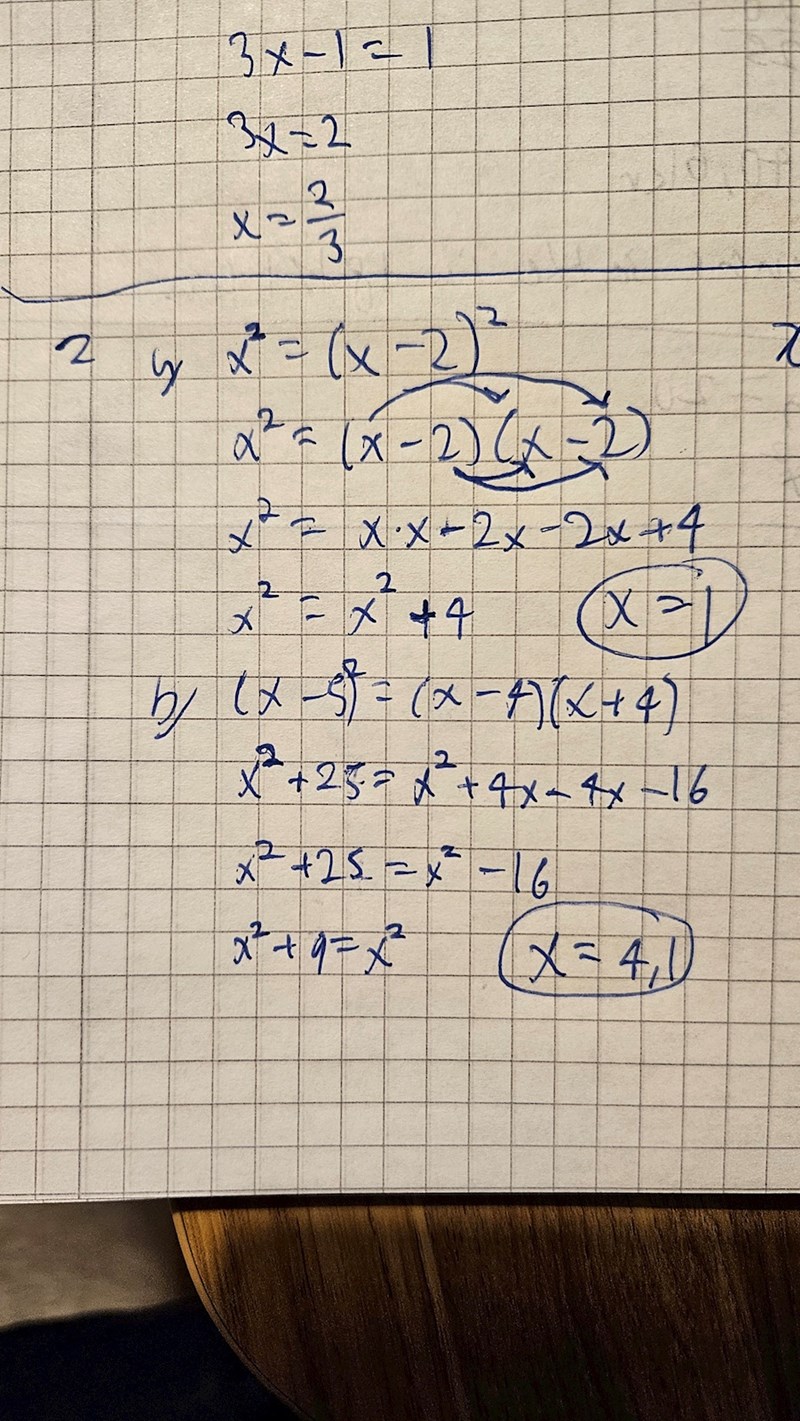 3x-1=1
3x=2
x=2/3
2 a) x²=(x-2)²
x²=(x-2)(x-2)
x²= x·x-2x-2x+4
x²=x²+4 x=1
b) (x-5)²=(x-4)(x+4)
x²+25=x²+4x-4x-16
x²+25=x²-16
x²+9=x² x=4,1